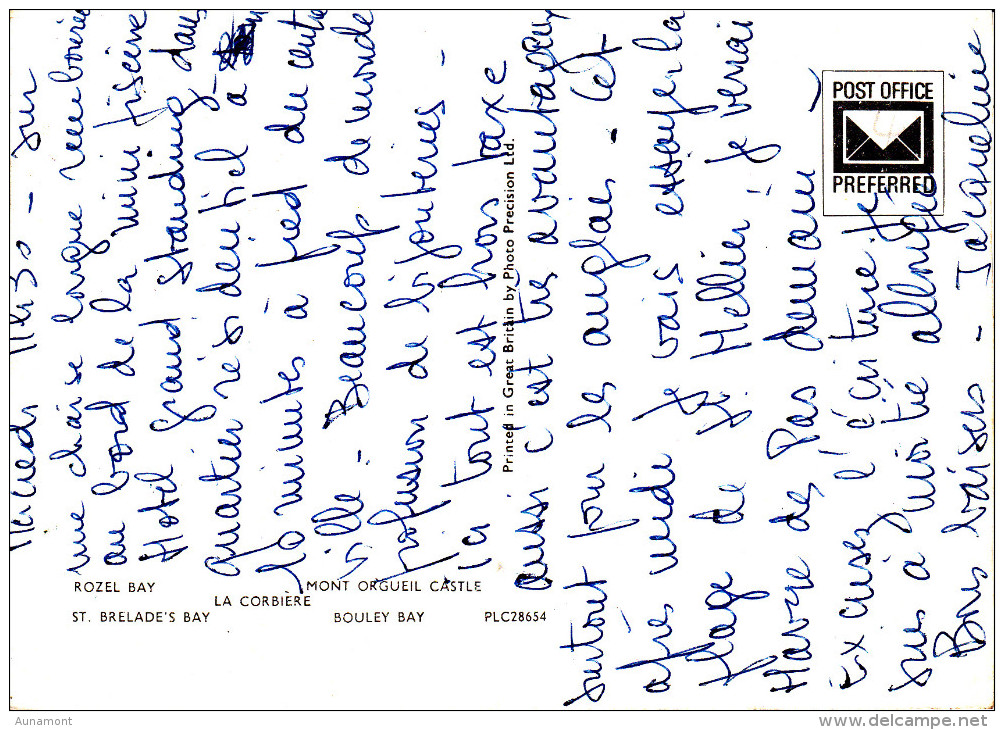 Mercredi 11h30 - sur
une chaise longue rembourrée
au bord de la mini piscine
Hotel grand standing dans
quartier résidentiel à
10 minutes à pied du centre
ville - Beaucoup de monde
profusion de bijouteries -
ici tout est hors taxe
aussi c'est très avantageux
surtout pour les anglais. Cet
après midi je vais essayer la
plage de St Hellier. je verrai
Havre des Pas demain -
Excusez l'écriture je
suis à moitié allongée
Bons baisers - Jacqueline
POST OFFICE
PREFERRED
Printed in Great Britain by Photo Precision Ltd.
ROZEL BAY
MONT ORGUEIL CASTLE
LA CORBIÈRE
ST. BRELADE'S BAY
BOULEY BAY
PLC28654
Aunamont
delcampe.net